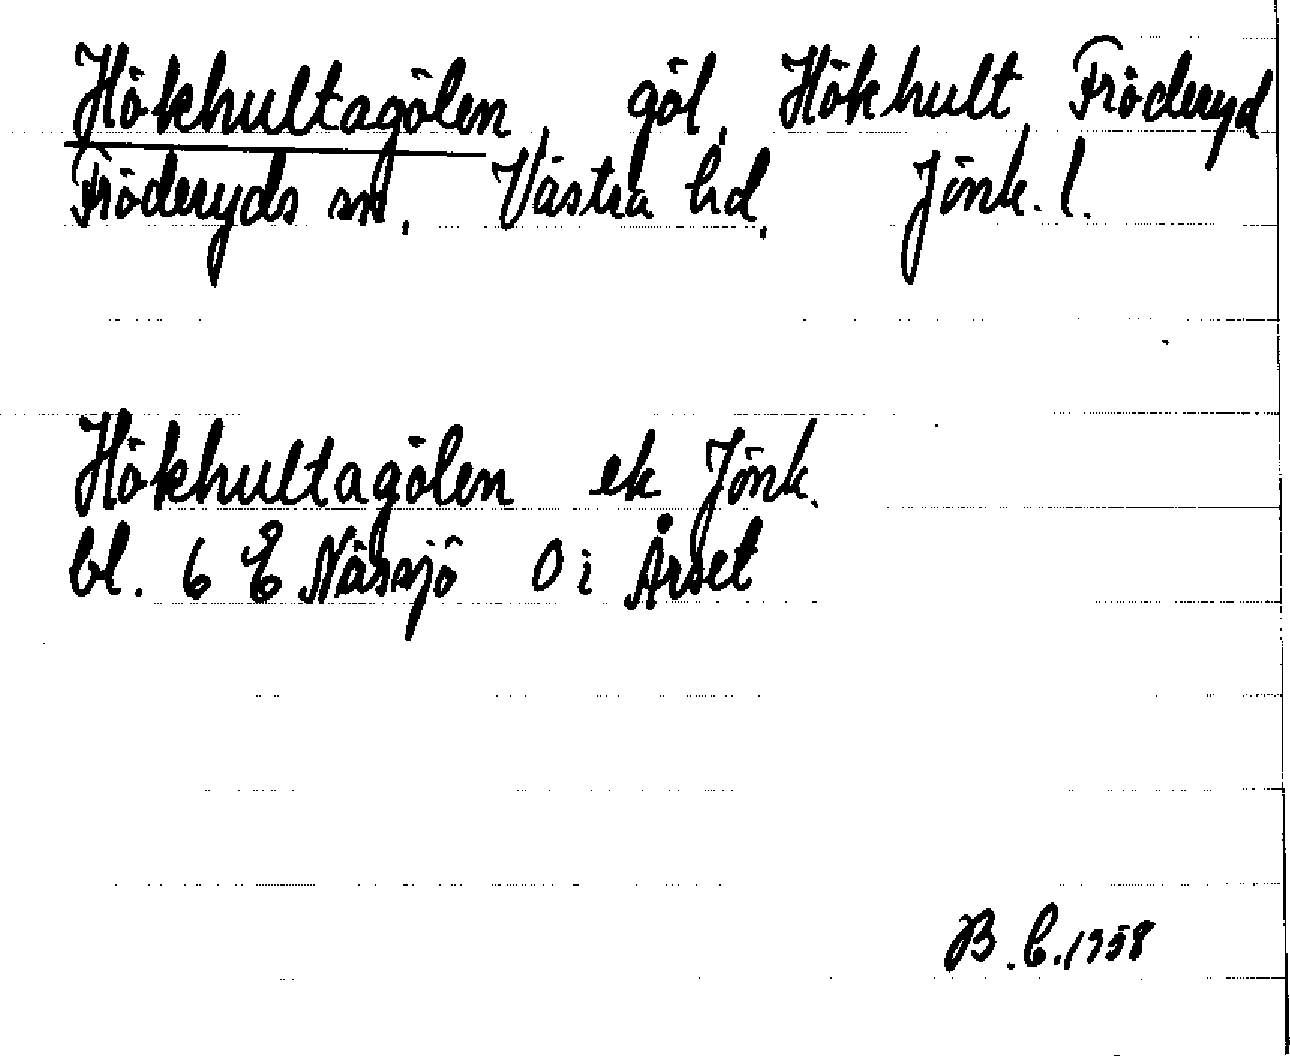 Hökhultagölen, göl, Hökhult Fröderyd
Fröderyds sn, Västra hd, Jönk. l.
Hökhultagölen ek Jönk.
bl. 6 E Nässjö O i Årset
B.C. 1958